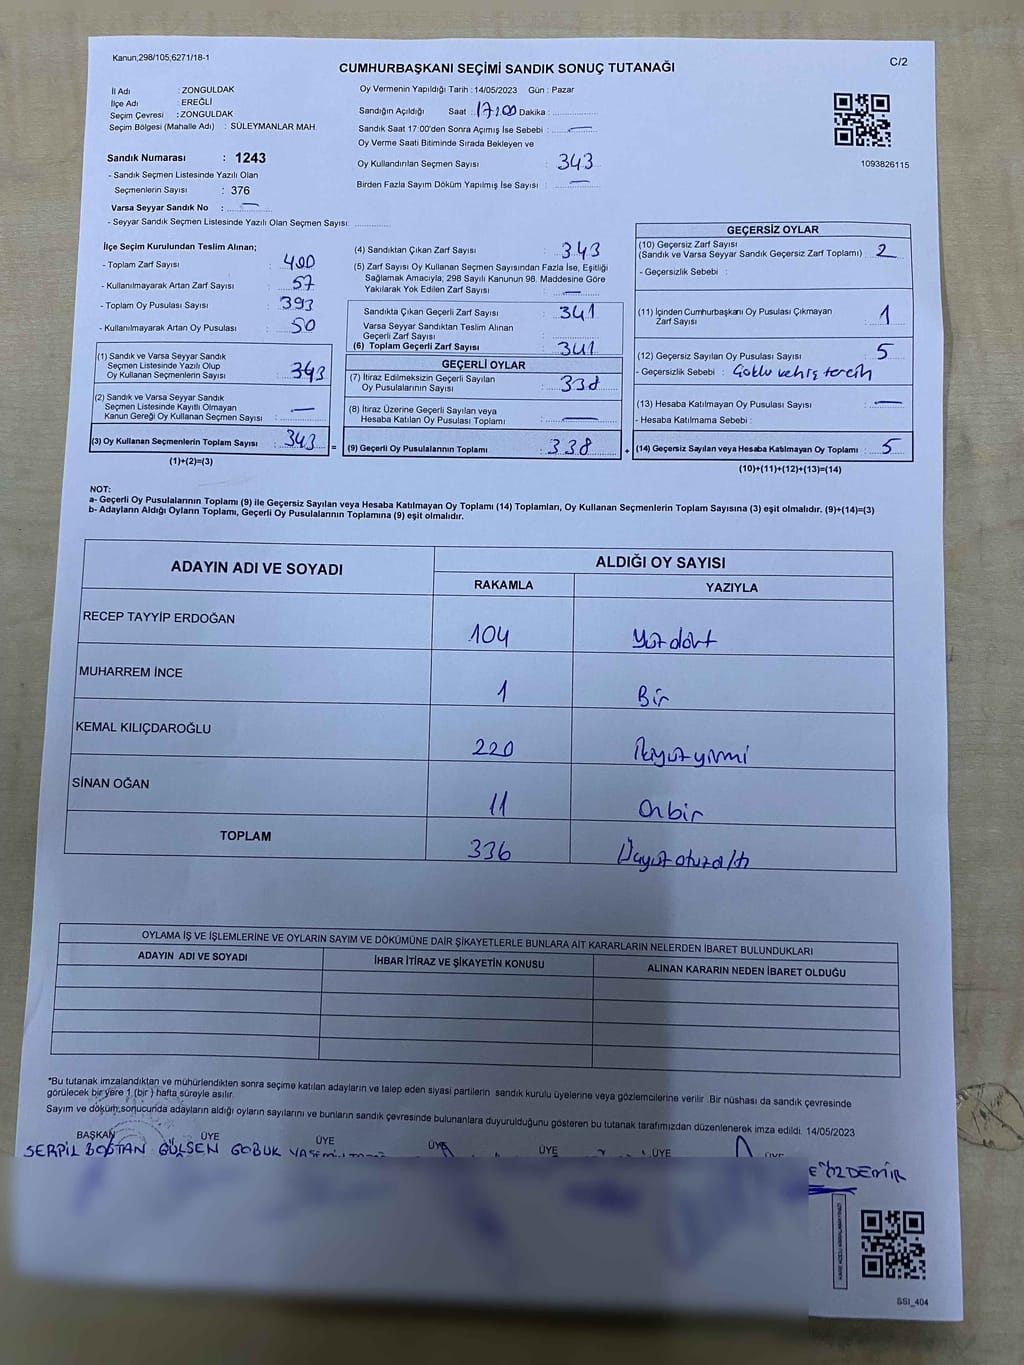 Kanun;298/105;6271/18-1
C/2
CUMHURBAŞKANI SEÇİMİ SANDIK SONUÇ TUTANAĞI
İl Adı : ZONGULDAK
İlçe Adı : EREĞLİ
Seçim Çevresi : ZONGULDAK
Seçim Bölgesi (Mahalle Adı) : SÜLEYMANLAR MAH.
Sandık Numarası : 1243
- Sandık Seçmen Listesinde Yazılı Olan
Seçmenlerin Sayısı : 376
Varsa Seyyar Sandık No : —
- Seyyar Sandık Seçmen Listesinde Yazılı Olan Seçmen Sayısı:
Oy Vermenin Yapıldığı Tarih : 14/05/2023 Gün : Pazar
Sandığın Açıldığı Saat : 17:00 Dakika :
Sandık Saat 17:00'den Sonra Açımış İse Sebebi : —
Oy Verme Saati Bitiminde Sırada Bekleyen ve
Oy Kullandırılan Seçmen Sayısı : 343
Birden Fazla Sayım Döküm Yapılmış İse Sayısı : —
1093826115
İlçe Seçim Kurulundan Teslim Alınan;
- Toplam Zarf Sayısı : 400
- Kullanılmayarak Artan Zarf Sayısı : 57
- Toplam Oy Pusulası Sayısı : 393
- Kullanılmayarak Artan Oy Pusulası : 50
(1) Sandık ve Varsa Seyyar Sandık
Seçmen Listesinde Yazılı Olup
Oy Kullanan Seçmenlerin Sayısı : 343
(2) Sandık ve Varsa Seyyar Sandık
Seçmen Listesinde Kayıtlı Olmayan
Kanun Gereği Oy Kullanan Seçmen Sayısı : —
(3) Oy Kullanan Seçmenlerin Toplam Sayısı : 343 =
(1)+(2)=(3)
(4) Sandıktan Çıkan Zarf Sayısı : 343
(5) Zarf Sayısı Oy Kullanan Seçmen Sayısından Fazla İse, Eşitliği
Sağlamak Amacıyla; 298 Sayılı Kanunun 98. Maddesine Göre
Yakılarak Yok Edilen Zarf Sayısı : —
Sandıkta Çıkan Geçerli Zarf Sayısı : 341
Varsa Seyyar Sandıktan Teslim Alınan
Geçerli Zarf Sayısı :
(6) Toplam Geçerli Zarf Sayısı : 341
GEÇERLİ OYLAR
(7) İtiraz Edilmeksizin Geçerli Sayılan
Oy Pusulalarının Sayısı : 338
(8) İtiraz Üzerine Geçerli Sayılan veya
Hesaba Katılan Oy Pusulası Toplamı : —
(9) Geçerli Oy Pusulalarının Toplamı : 338 +
GEÇERSİZ OYLAR
(10) Geçersiz Zarf Sayısı
(Sandık ve Varsa Seyyar Sandık Geçersiz Zarf Toplamı) : 2
- Geçersizlik Sebebi :
(11) İçinden Cumhurbaşkanı Oy Pusulası Çıkmayan
Zarf Sayısı : 1
(12) Geçersiz Sayılan Oy Pusulası Sayısı : 5
- Geçersizlik Sebebi : Çoklu ve hiç tercih
(13) Hesaba Katılmayan Oy Pusulası Sayısı : —
- Hesaba Katılmama Sebebi :
(14) Geçersiz Sayılan veya Hesaba Katılmayan Oy Toplamı : 5
(10)+(11)+(12)+(13)=(14)
NOT:
a- Geçerli Oy Pusulalarının Toplamı (9) ile Geçersiz Sayılan veya Hesaba Katılmayan Oy Toplamı (14) Toplamları, Oy Kullanan Seçmenlerin Toplam Sayısına (3) eşit olmalıdır. (9)+(14)=(3)
b- Adayların Aldığı Oyların Toplamı, Geçerli Oy Pusulalarının Toplamına (9) eşit olmalıdır.
ADAYIN ADI VE SOYADI
ALDIĞI OY SAYISI
RAKAMLA YAZIYLA
RECEP TAYYİP ERDOĞAN 104 Yüz dört
MUHARREM İNCE 1 Bir
KEMAL KILIÇDAROĞLU 220 İkiyüzyirmi
SİNAN OĞAN 11 Onbir
TOPLAM 336 Üçyüzotuzaltı
OYLAMA İŞ VE İŞLEMLERİNE VE OYLARIN SAYIM VE DÖKÜMÜNE DAİR ŞİKAYETLERLE BUNLARA AİT KARARLARIN NELERDEN İBARET BULUNDUKLARI
ADAYIN ADI VE SOYADI İHBAR İTİRAZ VE ŞİKAYETİN KONUSU ALINAN KARARIN NEDEN İBARET OLDUĞU
*Bu tutanak imzalandıktan ve mühürlendikten sonra seçime katılan adayların ve talep eden siyasi partilerin sandık kurulu üyelerine veya gözlemcilerine verilir .Bir nüshası da sandık çevresinde
görülecek bir yere 1 (bir ) hafta süreyle asılır.
Sayım ve döküm sonucunda adayların aldığı oyların sayılarını ve bunların sandık çevresinde bulunanlara duyurulduğunu gösteren bu tutanak tarafımızdan düzenlenerek imza edildi. 14/05/2023
BAŞKAN ÜYE ÜYE ÜYE ÜYE ÜYE ÜYE
SERPİL BOSTAN GÜLSEN GOBUK
ÖZDEMİR
SSI_404